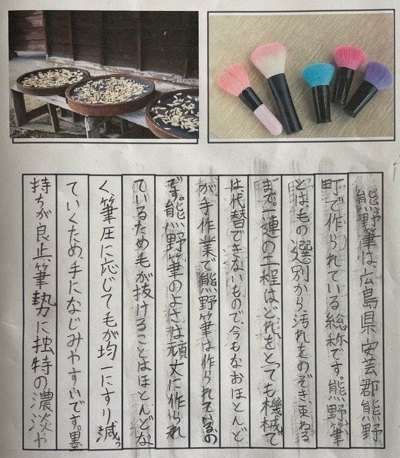 熊野筆は、広島県安芸郡熊野
町で作られている総称です。熊野筆
とはもの選別から、汚れをのぞき、束ねる
まで一連の工程はどれをとっても機械で
は代替できないもので、今もなおほとんど
が手作業で熊野筆は作られているの
です。熊野筆のよさは頑丈に作られ
ているため毛が抜けることはほとんどな
く、筆圧に応じて毛が均一にすり減っ
ていくため手になじみやすいです。墨
持ちが良止筆勢に独特の濃淡や